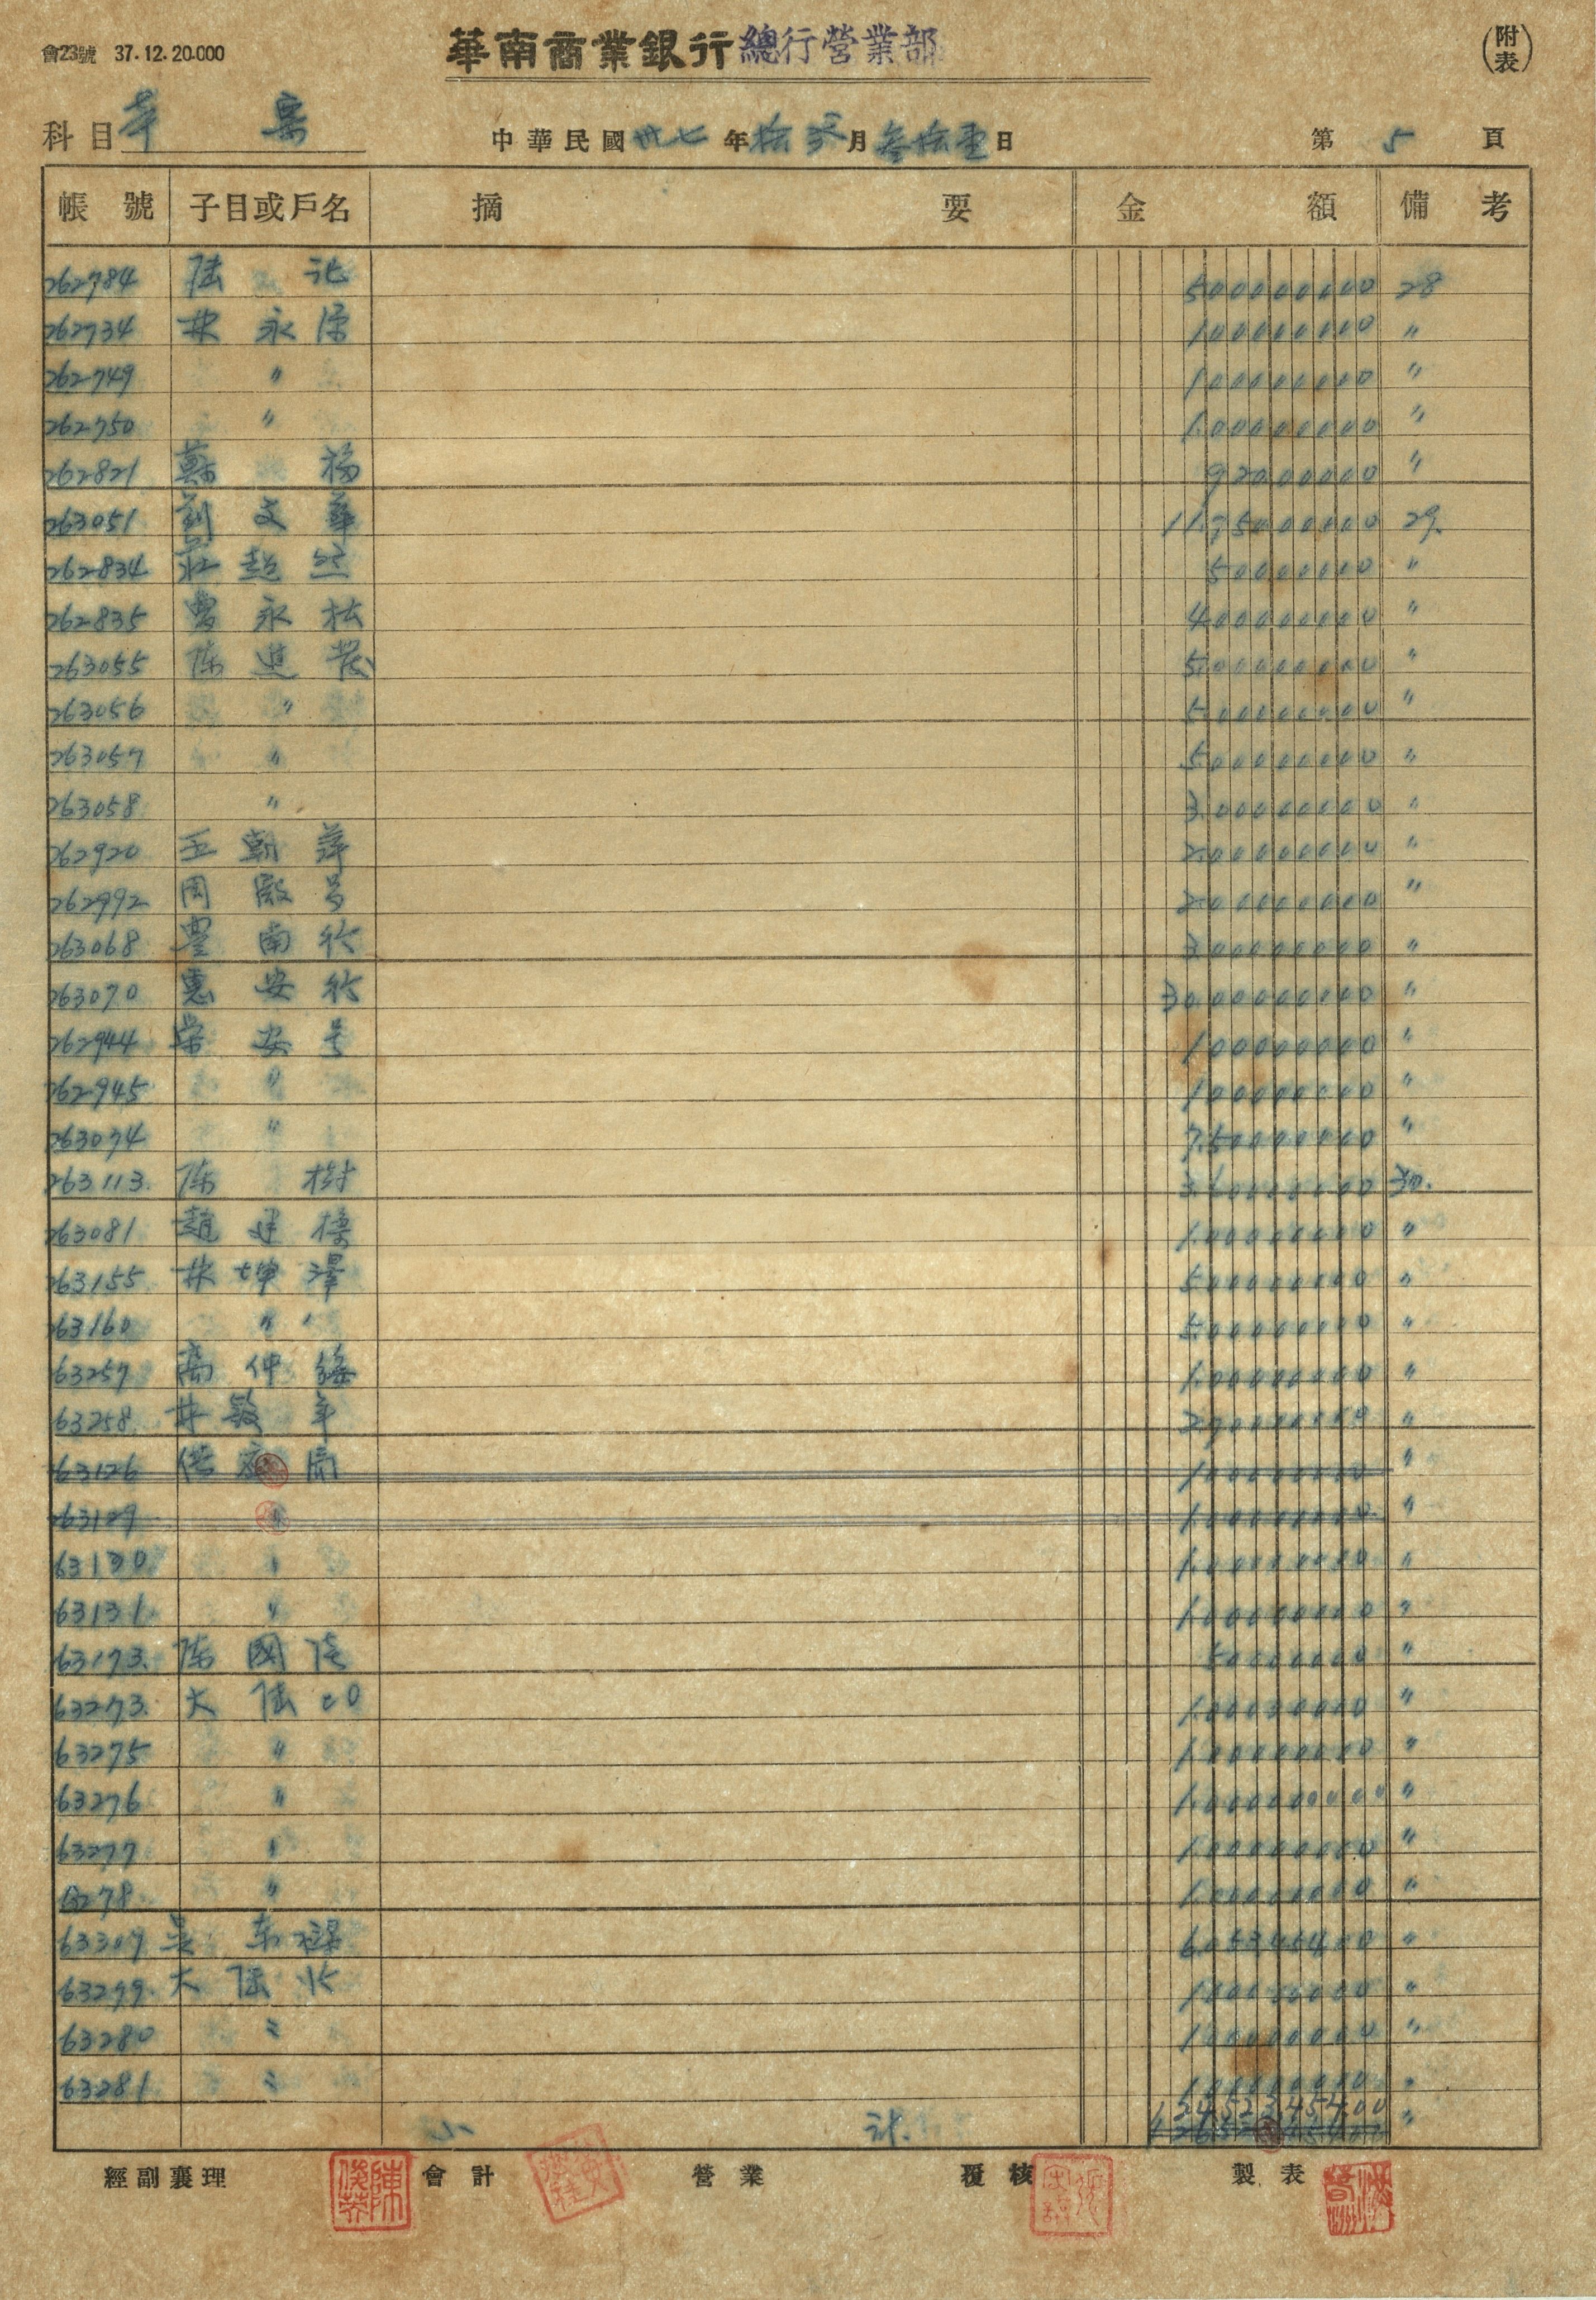 會23號 37.12.20.000
華南商業銀行總行營業部
(附表)
科目 本 票
中華民國卅七年拾弐月叁拾壹日
第 5 頁
帳號 子目或戶名 摘要 金額 備考
262784 陆 記 500000000 28
262734 林永深 100000000 〃
262749 〃 100000000 〃
262750 〃 1.00000000 〃
262821 蘇 楊 92000000 〃
263051 劉文華 29.
262834 莊超然 50000000 〃
262835 曹永松 400000000 〃
263055 陈進發 5.00000000 〃
263056 〃 500000000 〃
263057 〃 5.00000000 〃
263058 〃 3.00000000 〃
262920 王朝萍 2.00000000 〃
262992 周 号 2.00000000 〃
263068 豊南行 300000000 〃
263070 惠安行 30.00000000 〃
262944 榮安号 100000000 〃
262945 〃 100000000 〃
263074 〃 7.50000000 〃
263113. 陈 樹 3.60000000 30.
263081 趙建樑 1.00000000 〃
263155 林坤澤 500000000 〃
263160 〃 5.00000000 〃
63257 高仲 1.00000000 〃
63258. 林 年 〃
63126 100000000 〃
63129 〃 1.00000000 〃
63130 〃 1.00000000 〃
63131. 〃 1.00000000 〃
63173. 陈國 50000000 〃
63273. 大陆 1.00000000 〃
63275 〃 100000000 〃
63276 〃 〃
63277 〃 1.00000000 〃
278. 〃 1.00000000 〃
63307 吴东 605345400 〃
大陆 100000000 〃
63280 〃 100000000 〃
63281 〃 100000000 〃
小 計. 1245234 5400 〃
經副襄理 會計 營業 覆核 製表